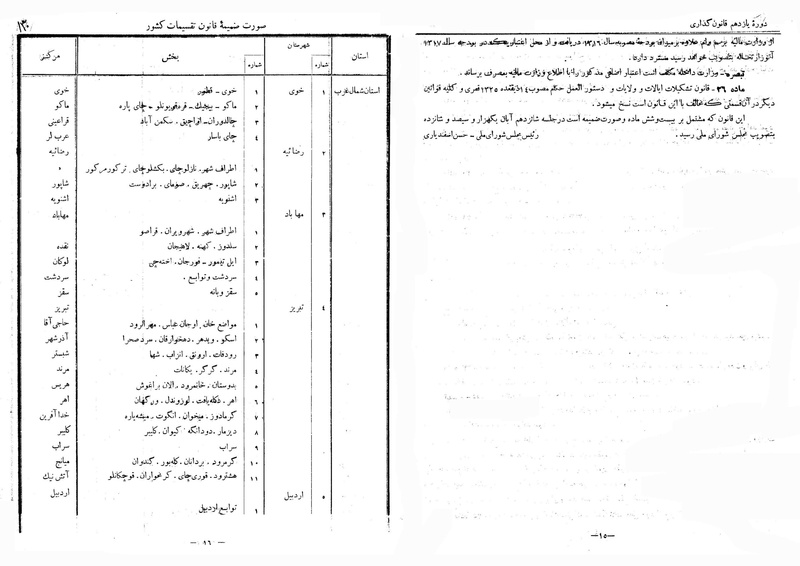 دورهٔ یازدهم قانون‌گذاری
از وزارت مالیه برسم وام علاوه بر میزان بودجهٔ مصوبه سال ۱۳۱۶ دریافت و از محل اعتباریکه در بودجه سال ۱۳۱۷
آنوزارتخانه بتصویب خواهد رسید مسترد دارد .
تبصره - وزارت داخله مکلف است اعتبار اضافی مذکور را با اطلاع وزارت مالیه بمصرف برساند .
ماده ۲۶ - قانون تشکیلات ایالات و ولایات و دستور العمل حکام مصوب ۱۴ ذیقعده ۱۳۲۵ قمری و کلیه قوانین
دیگر در آن قسمتی که مخالف با این قانون است نسخ میشود .
این قانون که مشتمل بر بیست‌وشش ماده و صورت ضمیمه است در جلسه شانزدهم آبان یکهزار و سیصد و شانزده
بتصویب مجلس شورای ملی رسید . رئیس مجلس شورای ملی - حسن اسفندیاری
—۱۵—
صورت ضمیمهٔ قانون تقسیمات کشور
استان شهرستان بخش مرکز
شماره شماره
استان شمال غرب ۱ خوی ۱ خوی - قطور خوی
۲ ماکو - بیجیک - قره‌قویونلو - چای پاره ماکو
۳ چالدوران - اواجیق . سکمن آباد قراعینی
۴ چای باسار عرب لر
۲ رضائیه رضائیه
۱ اطراف شهر . نازلوچای . بکشلوچای . ترکور مرکور
۲ شاپور . چهریق . صومای . برادوست شاپور
۳ اشنویه اشنویه
۳ مهاباد مهاباد
۱ اطراف شهر . شهرویران . قراصو
۲ سلدوز . کهنه . لاهیجان نقده
۳ ایل تیمور - قورجان . اخته‌چی لوکان
۴ سردشت و توابع . سردشت
۵ سقز و بانه سقز
۴ تبریز تبریز
۱ مواضع خان . اوجان عباس . مهرانرود حاجی آقا
۲ اسکو . ویدهر . دهخوارقان . سرد صحرا آذرشهر
۳ رودقات . ارونق . انزاب . شها شبستر
۴ مرند . گرگر . یکانات مرند
۵ بدوستان . خانمرود . الان براغوش هریس
۶ اهر . دکله‌یافت . اوزوندل . ورگهان اهر
۷ گرمادوز . میخوان . انگوت . میشه‌پاره خدا آفرین
۸ دیزمار . دودانگه . کیوان . کلیبر کلیبر
۹ سراب سراب
۱۰ گرمرود . بردانان . کله‌بوز . کندوان میانج
۱۱ هشترود . قوری‌چای . کرمخواران . قوچکانلو آتش نیک
۵ اردبیل اردبیل
۱ توابع اردبیل
— ۱۶ —